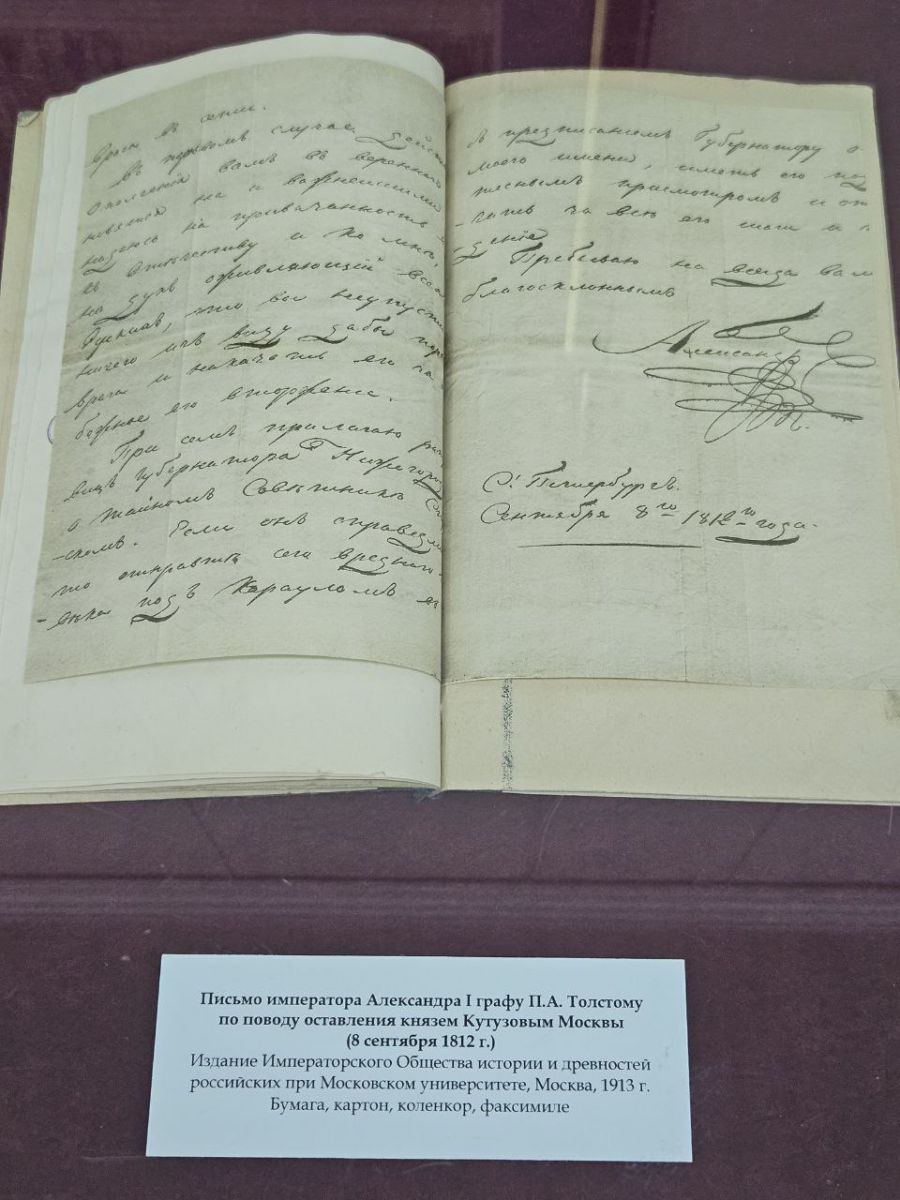 врага в
въ первомъ случаѣ
Ополченій вамъ въ вверенного
на и важнейшими
надеюсь на привязанность
къ Отечеству и ко мнѣ,
на духъ оживляющій
что вы неупустите
ничего изъ виду дабы
врага и наказать его за
его вторжение.
При семъ прилагаю
вицъ Губернатора Нижегород
о тайномъ Советнике
-скомъ. Если онъ справедли
то отправить сего вредного
подъ Карауломъ
съ предписаниемъ Губернатору о
моего имени, иметь его под
теснымъ присмотромъ и от
-чать за все его шаги и п
-дение
Пребываю на всегда вам
благосклоннымъ
Александр
С: Петербургъ.
Сентября 8го 1812го года.
Письмо императора Александра I графу П.А. Толстому
по поводу оставления князем Кутузовым Москвы
(8 сентября 1812 г.)
Издание Императорского Общества истории и древностей
российских при Московском университете, Москва, 1913 г.
Бумага, картон, коленкор, факсимиле